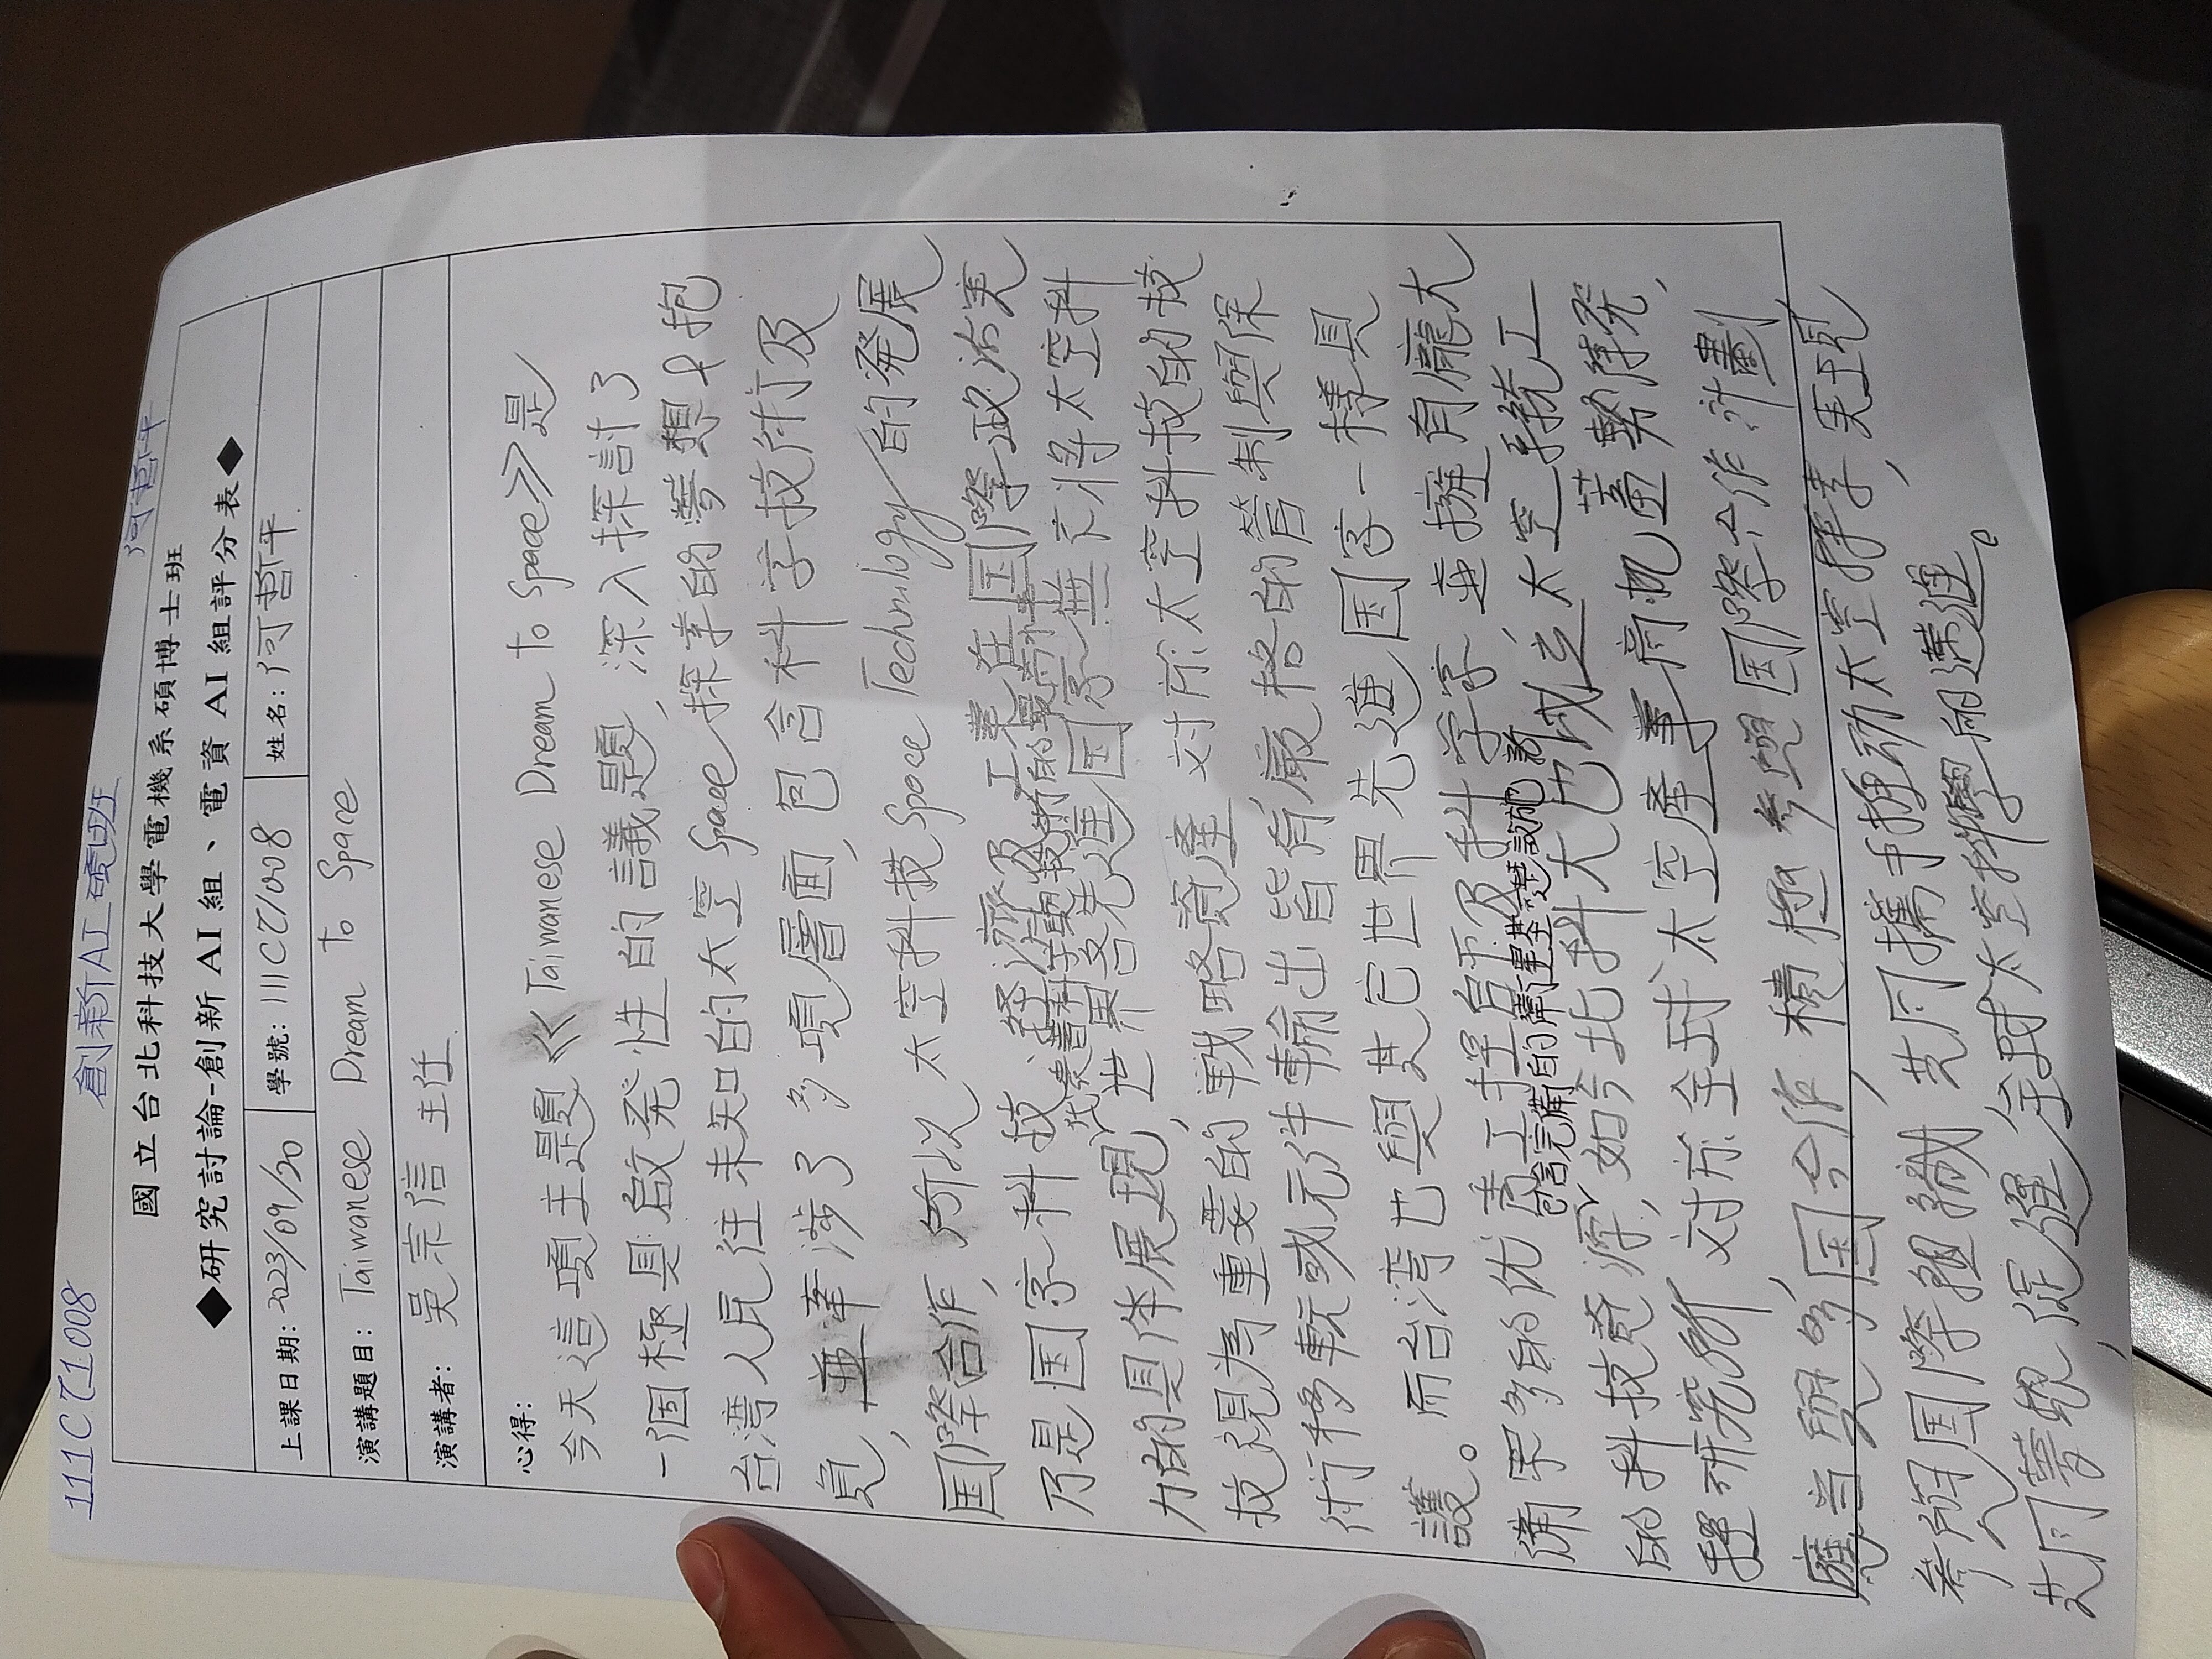 111C71008
創新AI碩班
何哲平
國立台北科技大學電機系碩博士班
◆研究討論-創新 AI 組、電資 AI 組評分表◆
上課日期: 2023/09/20 學號: 111C71008 姓名: 何哲平
演講題目: Taiwanese Dream to Space
演講者: 吳宗信 主任
心得:
今天這項主題《Taiwanese Dream to Space》是
一個極具啟発性的議題,深入探討了
台湾人民往未知的太空Space探索的夢想&抱
負,並牽涉了多項層面,包含科学技術及
国際合作,所以太空科技Space Technilogy的発展
乃是国家科技、経済及工業在国際政治実
代表著科学與技術的最高水平
力的具体展現,世界各先進国家無不将太空科
技視為重要的戦略資產,対於太空科技的技
術移転或元件輸出皆有厳格的管制與保
護。而台湾也與其它世界先進国家一樣具
備眾多的优秀工程師及科学家,並擁有龐大
包含完備的衛星基礎設施
的科技資源,如今北科大也成立太空系統工
程研究所,対於全球太空產業商机蓄勢待発,
應当與多国合作,積極參與国際合作計劃,
參與国際組織 共同攜手推动太空探索,実現
共同夢想,促進全球太空科學的邁進。